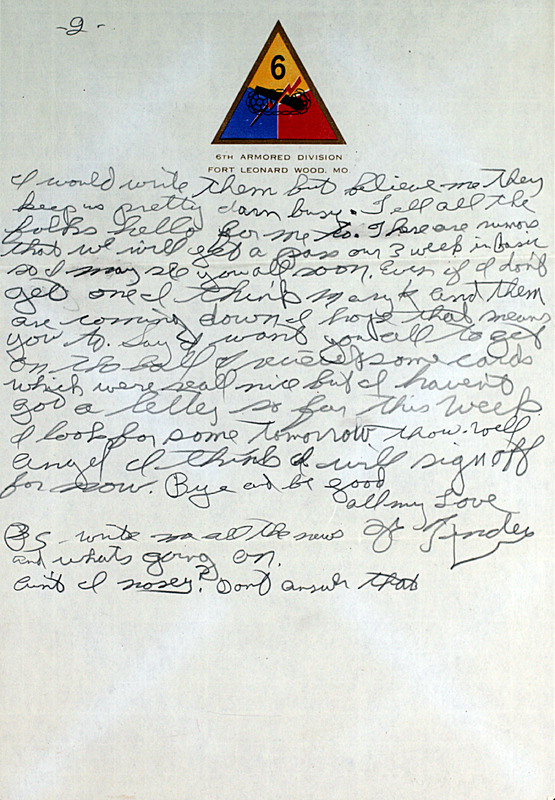 -2-
6
6TH ARMORED DIVISION
FORT LEONARD WOOD, MO
I would write them but believe me they
keep us pretty darn busy. Tell all the
folks hello for me to. There are rumors
that we will get a pass our 3 week in basic
so I may see you all soon. Even if I don't
get one I think Mary K and them
are coming down I hope that means
you to. Say I want you all to get
on the ball I recieved some cards
which were real nice but I havent
got a letter so far this week
I look for some tomorrow thow. Well
angel I think I will sign off
for now. Bye and be good
all my Love
PS write me all the news
and whats going on.
aint I nosey? Dont answer that